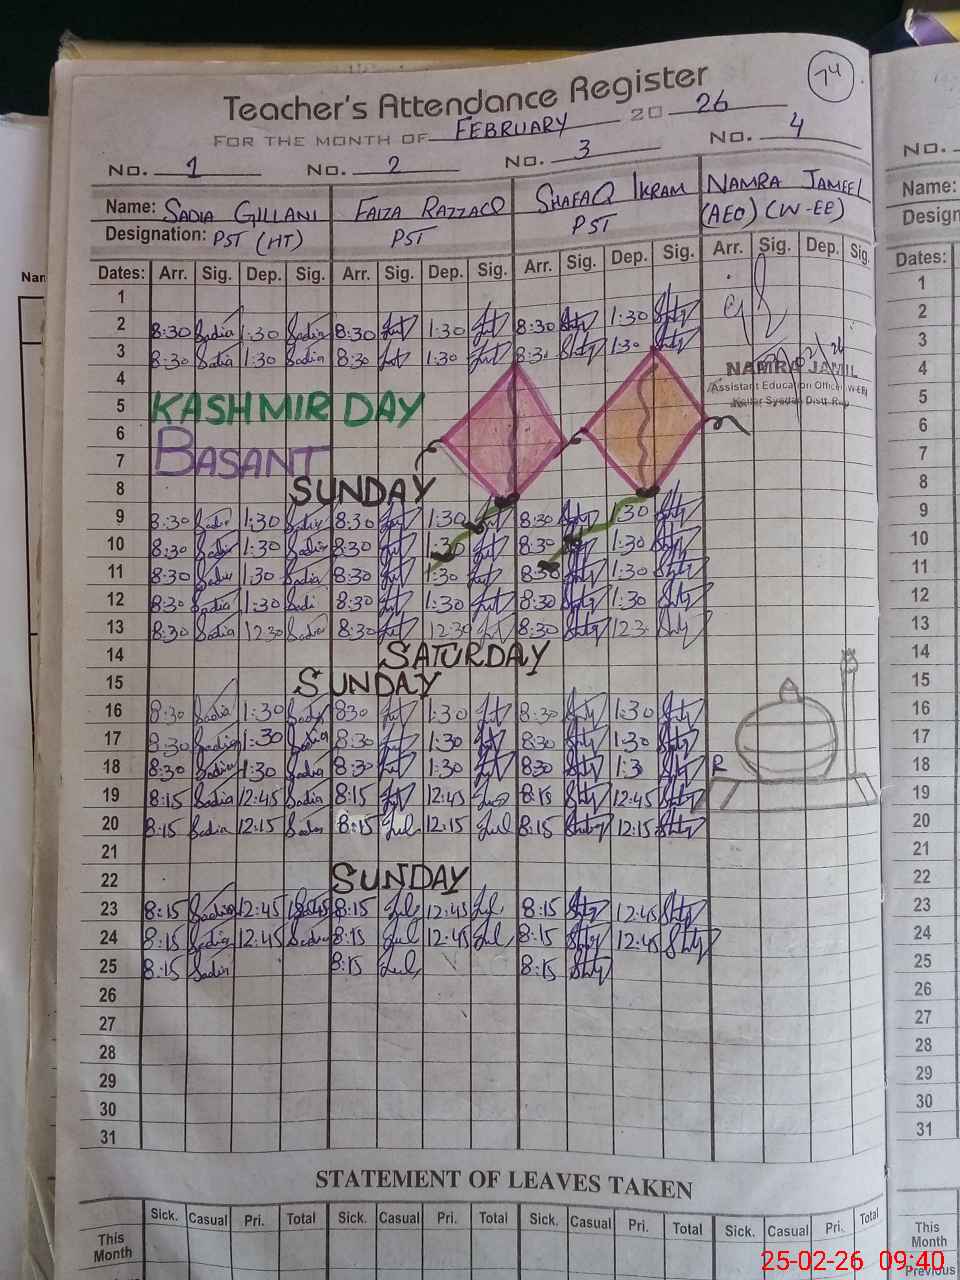 74
Teacher's Attendance Register
FOR THE MONTH OF FEBRUARY 20 26
No. 1 No. 2 No. 3 No. 4
Name: SADIA GILLANI FAIZA RAZZAQ SHAFAQ IKRAM NAMRA JAMEEL
Designation: PST (HT) PST PST (AEO) (W-EE)
Dates: Arr. Sig. Dep. Sig. Arr. Sig. Dep. Sig. Arr. Sig. Dep. Sig. Arr. Sig. Dep. Sig.
1
2 8:30 Sadia 1:30 Sadia 8:30 1:30 8:30 1:30
3 8:30 Sadia 1:30 Sadia 8:30 1:30 8:30 1:30
4 NAMRA JAMIL
Assistant Education Officer W-EE
Kallar Syedan Distt Rwp
5 KASHMIR DAY
6
7 BASANT
8 SUNDAY
9 8:30 Sadia 1:30 Sadia 8:30 1:30 8:30 1:30
10 8:30 Sadia 1:30 Sadia 8:30 1:30 8:30 1:30
11 8:30 Sadia 1:30 Sadia 8:30 1:30 8:30 1:30
12 8:30 Sadia 1:30 Sadi 8:30 1:30 8:30 1:30
13 8:30 Sadia 12:30 Sadia 8:30 12:30 8:30 12:3
14 SATURDAY
15 SUNDAY
16 8:30 Sadia 1:30 Sadia 830 1:30 8:30 1:30
17 8:30 Sadia 1:30 Sadia 8:30 1:30 8:30 1:30
18 8:30 Sadia 1:30 Sadia 8:30 1:30 8:30 1:3 R
19 8:15 Sadia 12:45 Sadia 8:15 12:45 8:15 12:45
20 8:15 Sadia 12:15 Sadia 8:15 12:15 8:15 12:15
21
22 SUNDAY
23 8:15 Sadia 12:45 Sadia 8:15 12:45 8:15 12:45
24 8:15 Sadia 12:45 Sadia 8:15 12:45 8:15 12:45
25 8:15 Sadia 8:15 8:15
26
27
28
29
30
31
STATEMENT OF LEAVES TAKEN
Sick. Casual Pri. Total Sick. Casual Pri. Total Sick. Casual Pri. Total Sick. Casual Pri. Total
This Month
No.
Name:
Design
Dates:
1
2
3
4
5
6
7
8
9
10
11
12
13
14
15
16
17
18
19
20
21
22
23
24
25
26
27
28
29
30
31
This Month
Previous
Nan
25-02-26 09:40